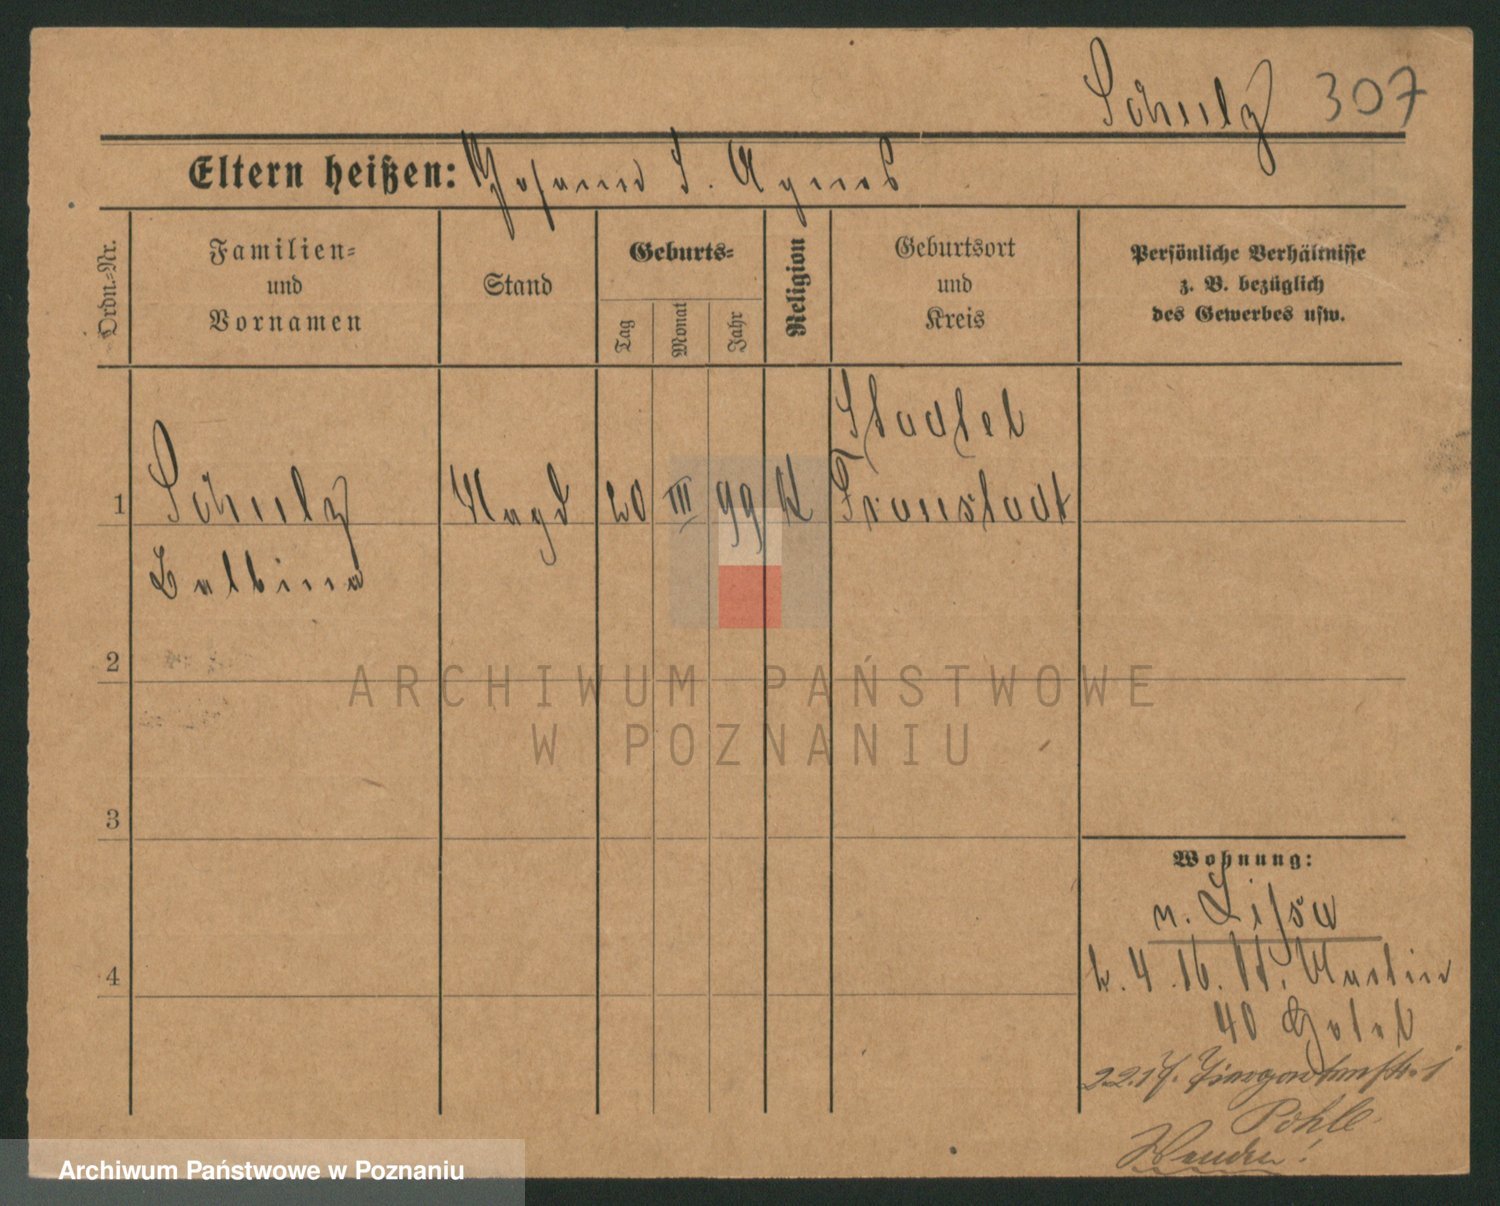 Schulz 307
Eltern heißen: Johann u. Agnes
Ordn.=Nr.
Familien=
und
Vornamen
Stand
Geburts=
Tag
Monat
Jahr
Religion
Geburtsort
und
Kreis
Persönliche Verhältnisse
z. B. bezüglich
des Gewerbes usw.
1
Schulz
Magd
20
III
99
K
Fraustadt
Balbina
2
3
4
Wohnung:
n. Lissa
4.16. St. Martin
40
22.17.
Pohle
Wenden!
ARCHIWUM PAŃSTWOWE
W POZNANIU
Archiwum Państwowe w Poznaniu